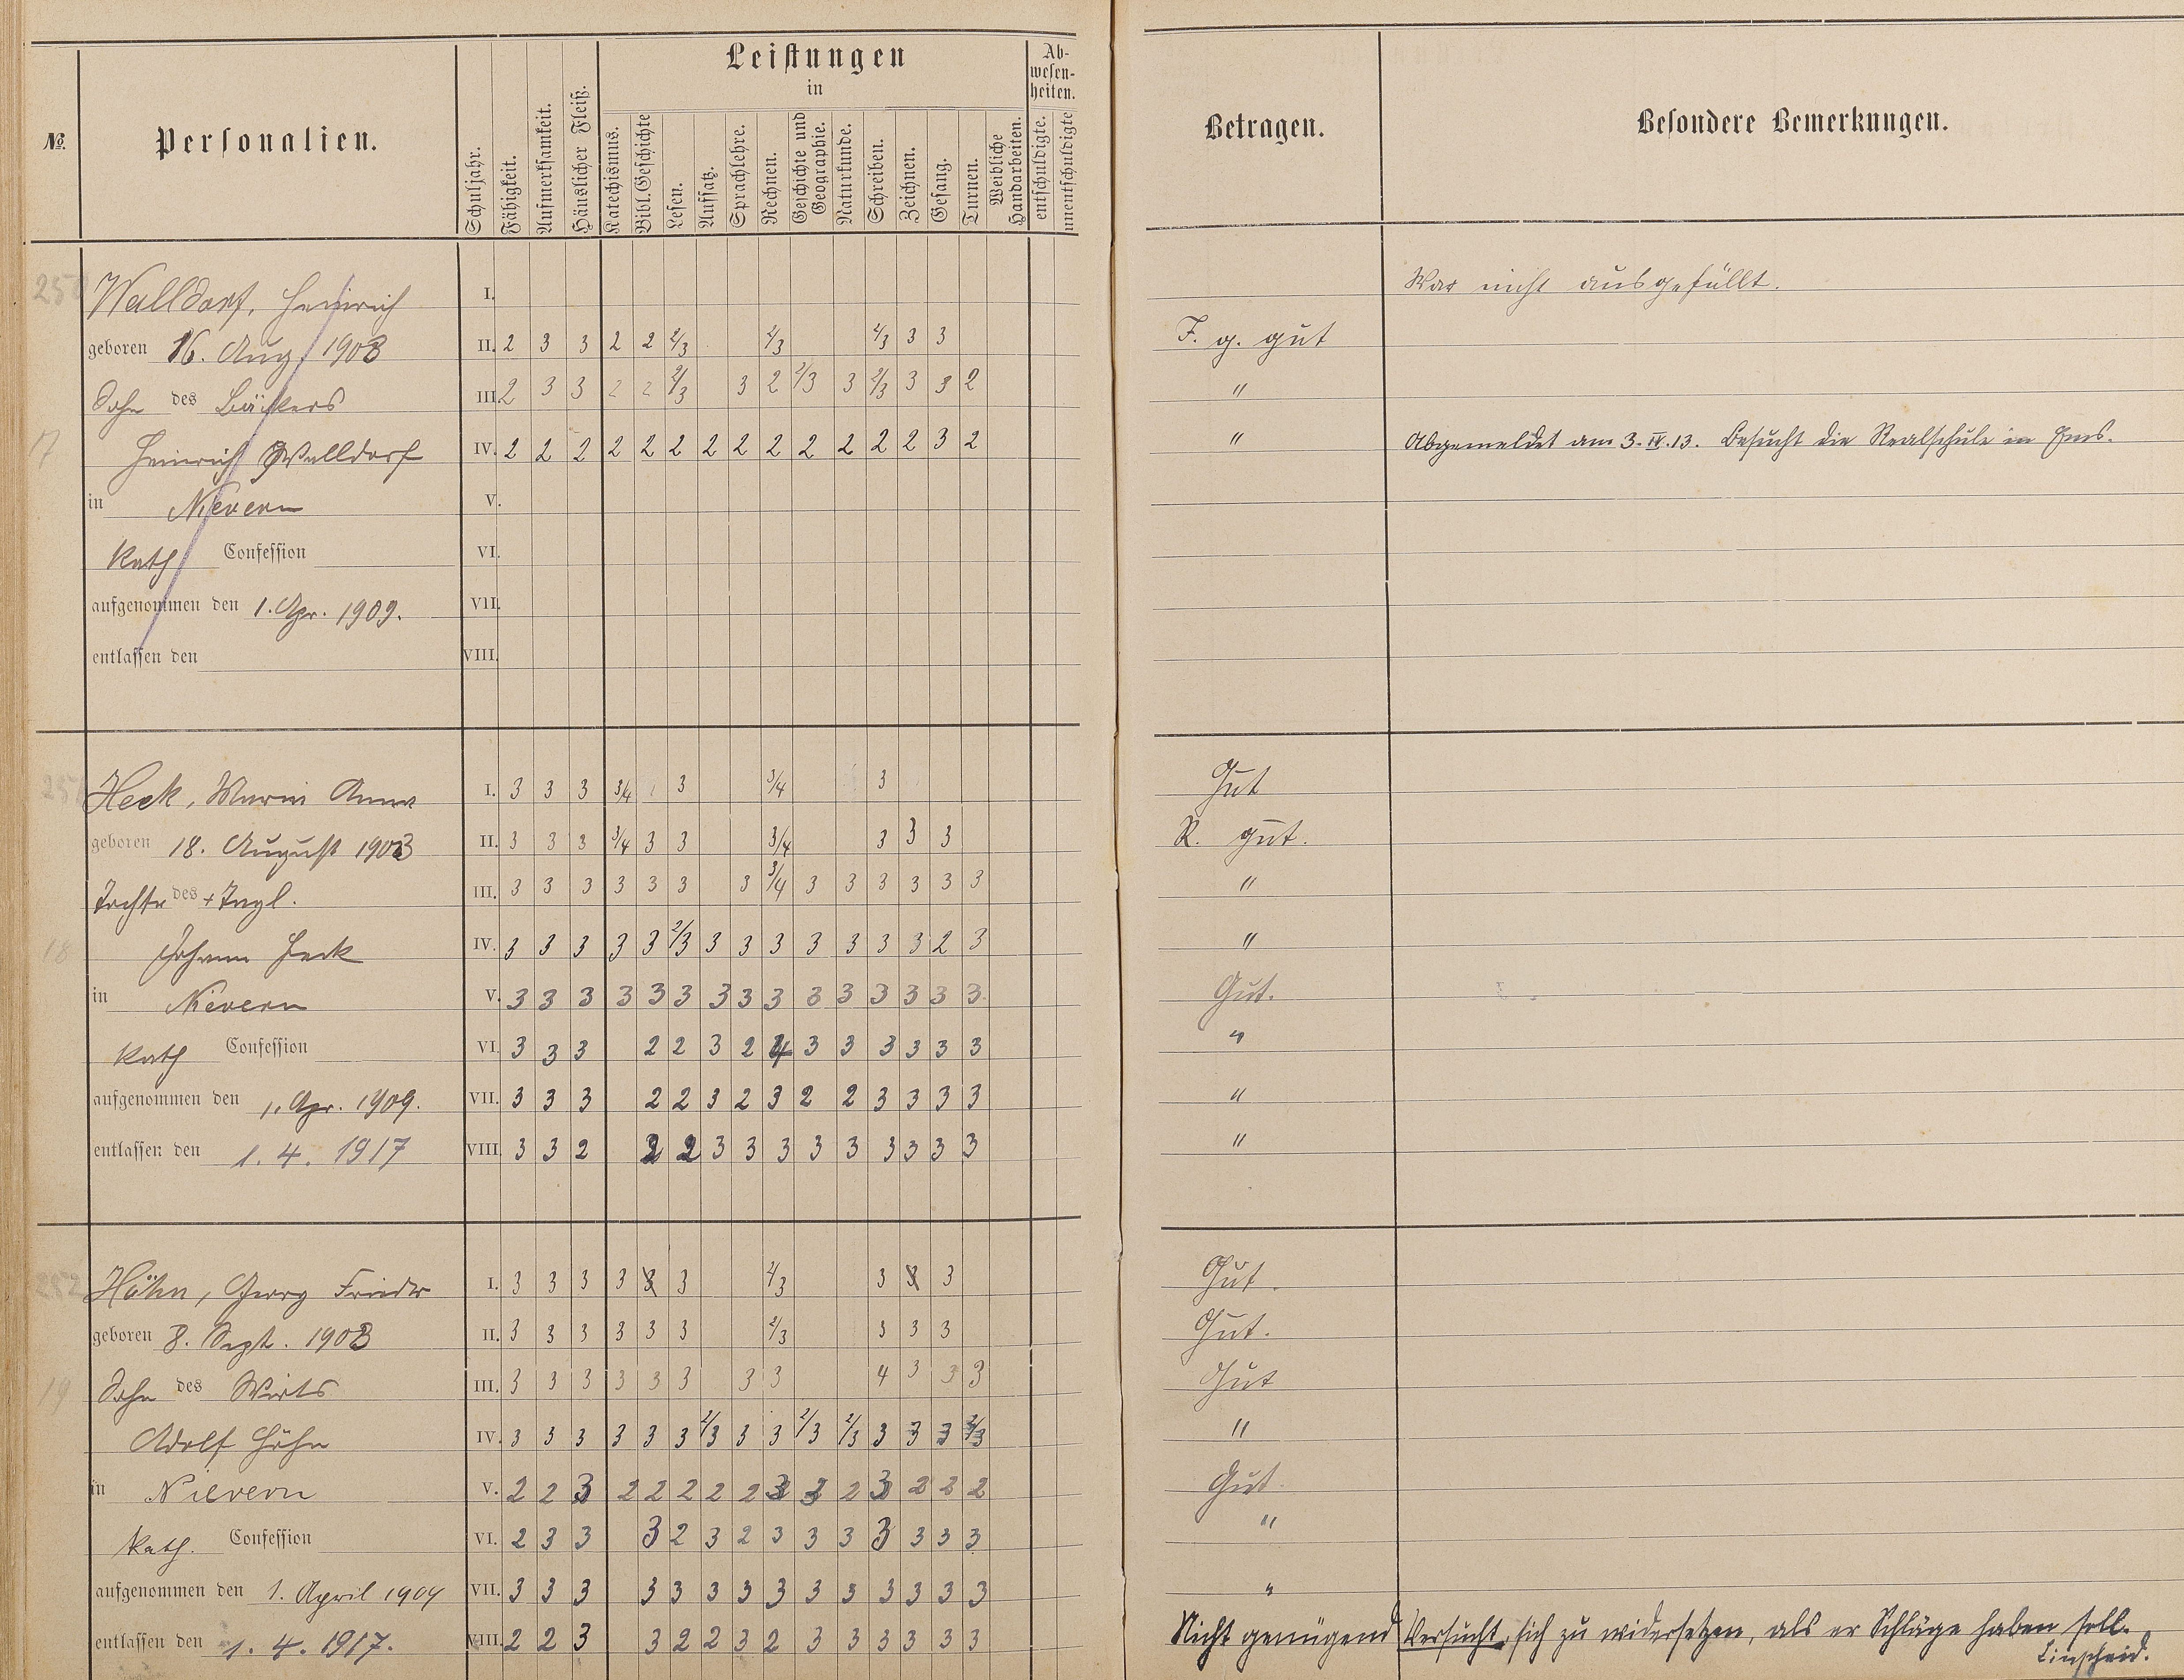 No.
Personalien.
Schuljahr.
Fähigkeit.
Aufmerksamkeit.
Häuslicher Fleiß.
Leistungen
in
Katechismus.
Bibl. Geschichte
Lesen.
Aufsatz.
Sprachlehre.
Rechnen.
Geschichte und Geographie.
Naturkunde.
Schreiben.
Zeichnen.
Gesang.
Turnen.
Weibliche Handarbeiten.
Ab-
wesen-
heiten.
entschuldigte.
unentschuldigte
Betragen.
Besondere Bemerkungen.
250
Walldorf, Heinrich I. War nicht ausgefüllt.
geboren 16. Aug. 1903 II. 2 3 3 2 2 2/3 2/3 2/3 3 3 F. g. gut
Sohn des Bäckers III. 2 3 3 2 2 2/3 3 2 2/3 3 2/3 3 3 2 "
17 Heinrich Walldorf IV. 2 2 2 2 2 2 2 2 2 2 2 2 2 3 2 " Abgemeldet am 3. IV. 13. Besucht die Realschule in Ems.
in Nievern V.
Kath Confession VI.
aufgenommen den 1. Apr. 1909. VII.
entlassen den VIII.
251
Heck, Maria Anna I. 3 3 3 3/4 3 3/4 3 Gut
geboren 18. August 1903 II. 3 3 3 3/4 3 3 3/4 3 3 3 R. gut.
Tochter des + Tagl. III. 3 3 3 3 3 3 3 3/4 3 3 3 3 3 3 "
18 Johann Heck IV. 3 3 3 3 3 2/3 3 3 3 3 3 3 3 2 3 "
in Nievern V. 3 3 3 3 3 3 3 3 3 3 3 3 3 3 3 Gut.
Kath Confession VI. 3 3 3 2 2 3 2 4 3 3 3 3 3 3 "
aufgenommen den 1. Apr. 1909. VII. 3 3 3 2 2 3 2 3 2 2 3 3 3 3 "
entlassen den 1. 4. 1917 VIII. 3 3 2 2 2 3 3 3 3 3 3 3 3 3 "
252
Höhn, Georg Friedr I. 3 3 3 3 3 3 2/3 3 3 3 Gut.
geboren 8. Sept. 1903 II. 3 3 3 3 3 3 2/3 3 3 3 Gut.
19 Sohn des Wirts III. 3 3 3 3 3 3 3 3 4 3 3 3 Gut
Adolf Höhn IV. 3 3 3 3 3 3 2/3 3 3 2/3 2/3 3 3 3 2/3 "
in Nievern V. 2 2 3 2 2 2 2 2 3 2 2 3 2 2 2 Gut
Kath. Confession VI. 2 3 3 3 2 3 2 3 3 3 3 3 3 3 "
aufgenommen den 1. April 1909 VII. 3 3 3 3 3 3 3 3 3 3 3 3 3 3 "
entlassen den 1. 4. 1917. VIII. 2 2 3 3 2 2 3 2 3 3 3 3 3 3 Nicht genügend Versucht, sich zu widersetzen, als er Schläge haben soll.
Linscheid.